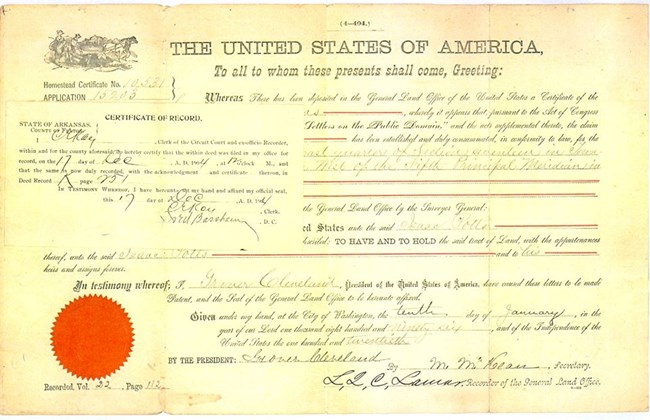 (4-404.)
THE UNITED STATES OF AMERICA,
To all to whom these presents shall come, Greeting:
Homestead Certificate No. 10,531
APPLICATION 15203
Whereas There has been deposited in the General Land Office of the United States a Certificate of the
, whereby it appears that, pursuant to the Act of Congress
Settlers on the Public Domain," and the acts supplemental thereto, the claim
has been established and duly consummated, in conformity to law, for the
east quarter of Section seventeen in
West of the Fifth Principal Meridian in
CERTIFICATE OF RECORD.
STATE OF ARKANSAS,
COUNTY OF
, Clerk of the Circuit Court and ex-officio Recorder,
within and for the county aforesaid, do hereby certify that the within deed was filed in my office for
record, on the 17 day of Dec A. D. 1904, at M., and
that the same is now duly recorded, with the acknowledgment and certificate thereon, in
Deed Record page 237
IN TESTIMONY WHEREOF, I have hereunto set my hand and affixed my official seal,
this 17 day of Dec A. D. 1904
, Clerk.
D. C.
the General Land Office by the Surveyor General:
ed States unto the said Isaac Potts
described: TO HAVE AND TO HOLD the said tract of Land, with the appurtenances
thereof, unto the said Isaac Potts and to his
heirs and assigns forever.
In testimony whereof, I, Grover Cleveland, President of the United States of America, have caused these letters to be made
Patent, and the Seal of the General Land Office to be hereunto affixed.
Given under my hand, at the City of Washington, the tenth day of January, in the
year of our Lord one thousand eight hundred and ninety six, and of the Independence of the
United States the one hundred and twentieth
BY THE PRESIDENT: Grover Cleveland
By M. McKean, Secretary.
L. Q. C. Lamar, Recorder of the General Land Office.
Recorded, Vol. 22, Page 112